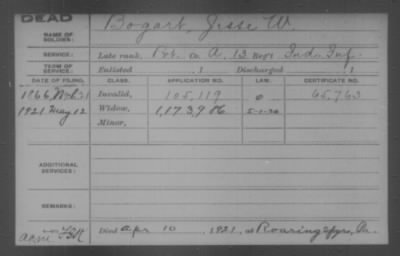 DEAD
NAME OF SOLDIER: Bogart, Jesse W.
SERVICE: Late rank, Pvt. Co. A, 13 Reg't Ind. Inf.
TERM OF SERVICE: Enlisted , 1 Discharged , 1
DATE OF FILING. CLASS. APPLICATION NO. LAW. CERTIFICATE NO.
1866 Feb 21 Invalid, 105,119 65,763
1921 May 12 Widow, 1,173,906 5-1-20
Minor,
ADDITIONAL SERVICES:
REMARKS:
Died Apr 10, 1921, at Roaring Spgs, Pa.